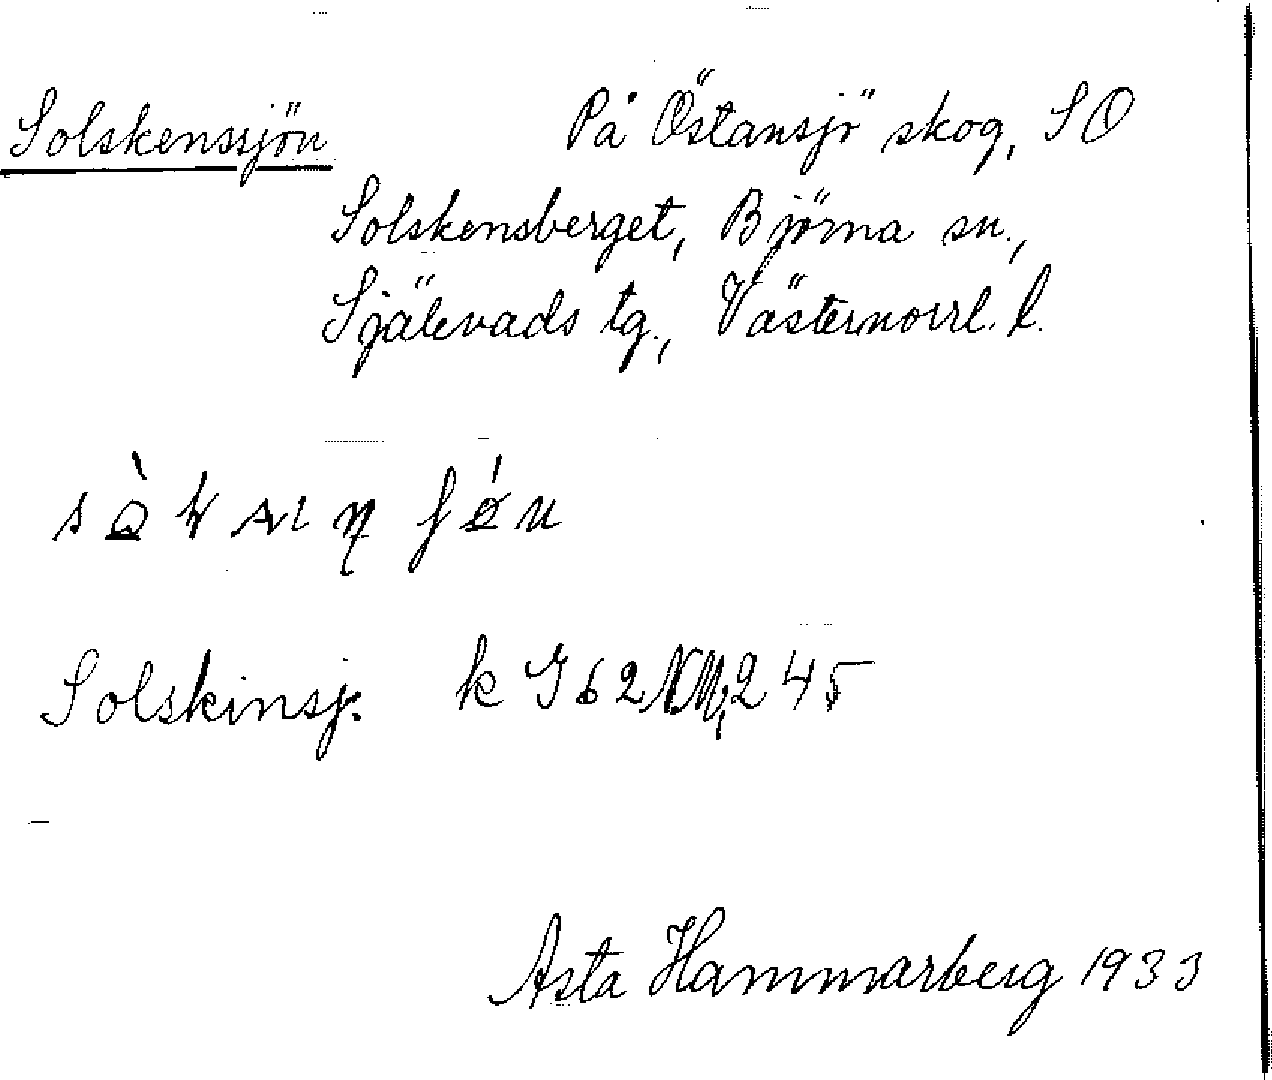 Solskenssjön På Östansjö skog, SO
Solskensberget, Björna sn.,
Själevads tg., Västernorrl. l.
Solskinsj. k 245
Asta Hammarberg 1933